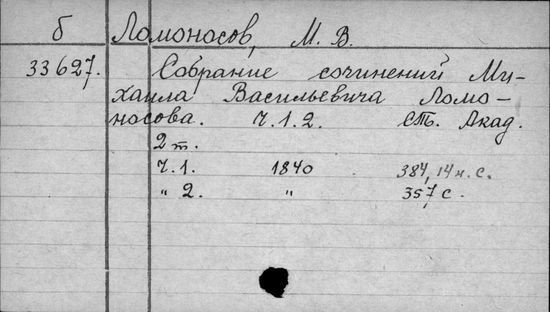 б Ломоносов, М. В.
33627. Собрание сочинений Ми-
хаила Васильевича Ломо-
носова. Ч. 1. 2. СПб. Акад.
2 т.
Ч. 1. 1840 384, 14 н. с.
" 2. " 357 с.